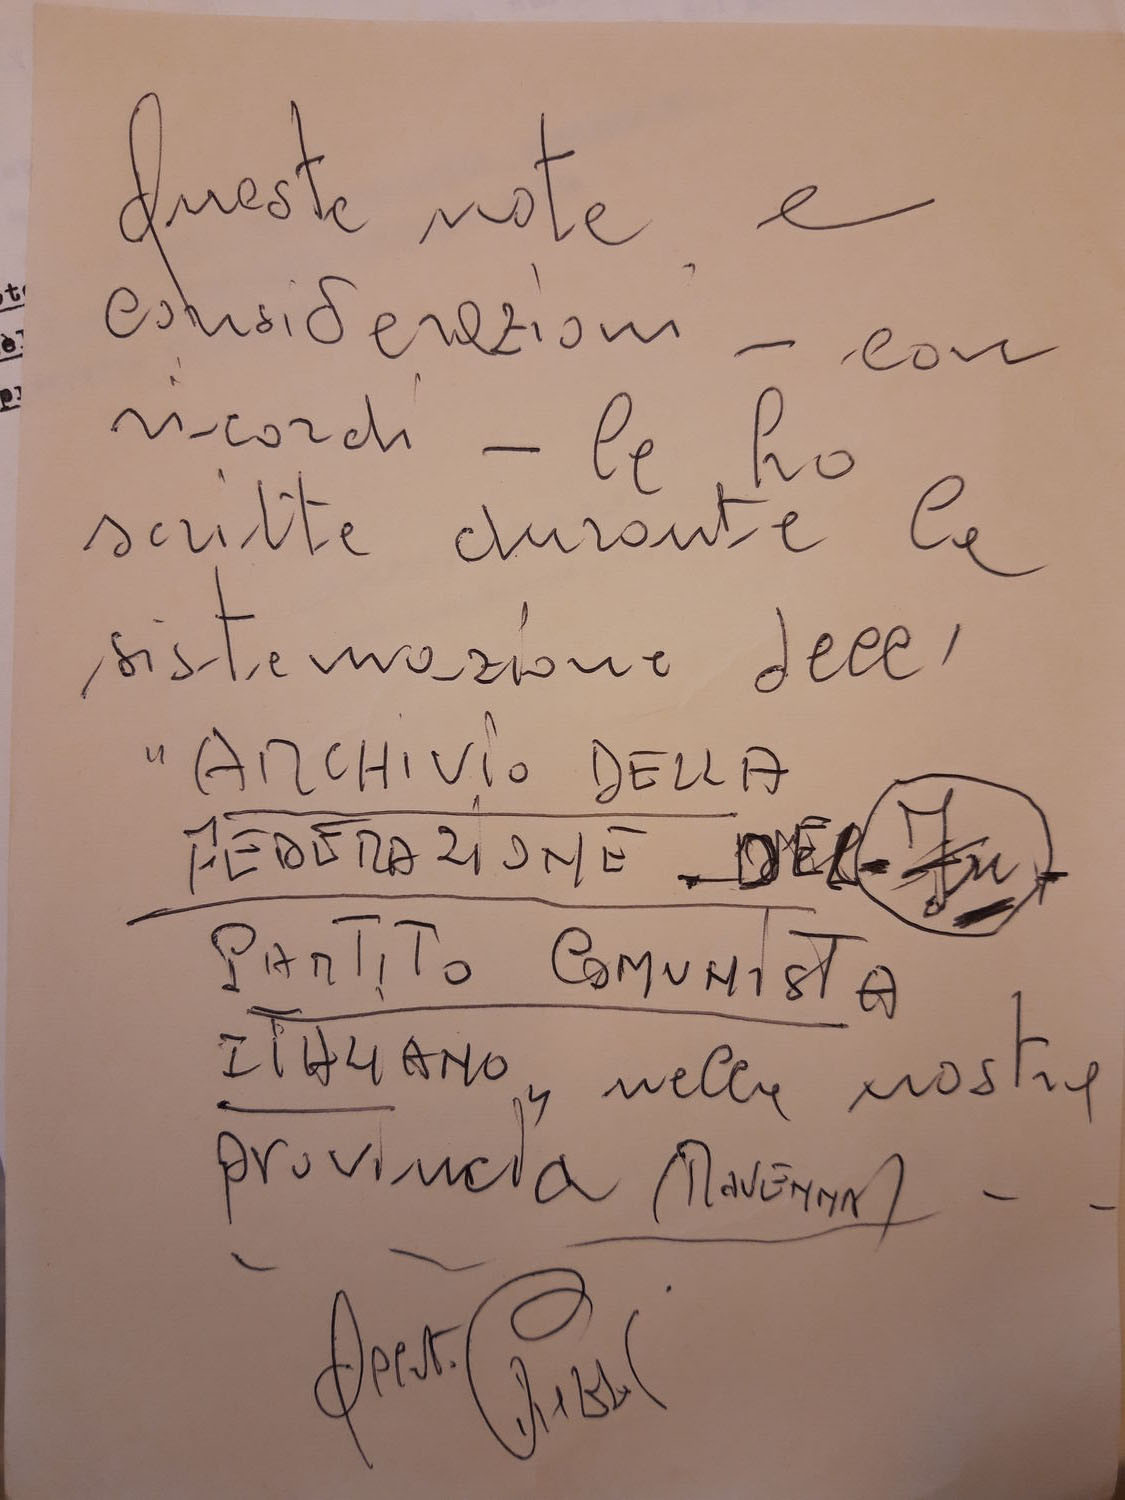 Queste note e
considerazioni - con
ricordi - le ho
scritte durante la
sistemazione dell'
"ARCHIVIO DELLA
FEDERAZIONE DEL
PARTITO COMUNISTA
ITALIANO" nella nostra
provincia (RAVENNA) - -